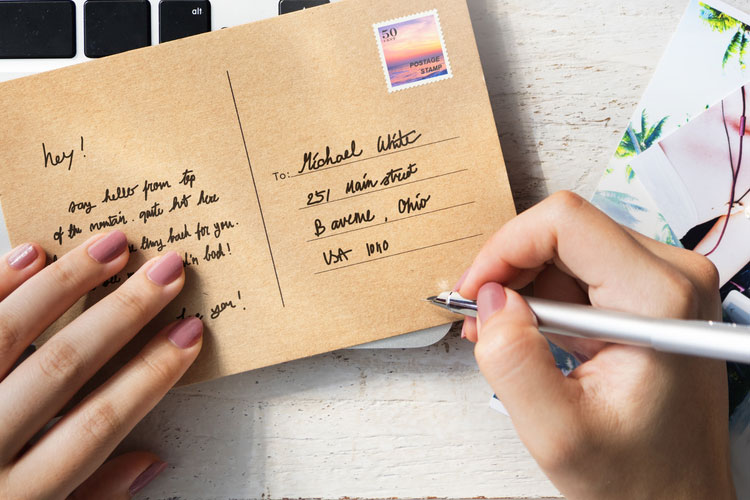 alt
50
POSTAGE
STAMP
hey!
say hello from top
of the mountain. quite hot here
tiny back for you.
To: Michael White
251 Main street
B avenue, Ohio
USA 1010
you!